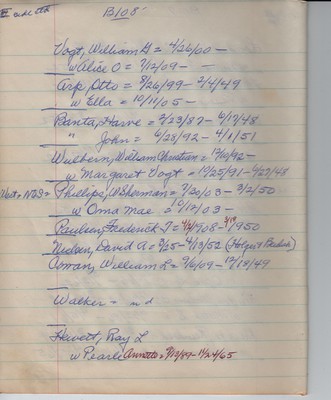 B108
Vogt, William H = 4/26/00 -
w Alice O = 7/12/09 - -
Arp, Otto = 8/26/99 - 2/4/49
w Ella = 10/11/05 -
Ranta, Harve = 2/23/87 - 6/17/48
" John = 6/28/92 - 4/1/51
Wulbern, William Christian = 12/10/92 -
w Margaret Vogt = 10/25/91 - 4/27/48
Phillips, W Sherman = 7/30/03 - 3/2/50
w Oma Mae = 10/12/03 -
Paulsen, Frederick T = 4/4/908 - 3/19/950
Nielsen, David A = 9/25 - 4/13/52 (Holger &
Cowan, William L = 9/6/09 - 12/18/49
Walker = n d
Hewett, Ray L
w Pearl Annetta = 9/13/89 - 11/24/65